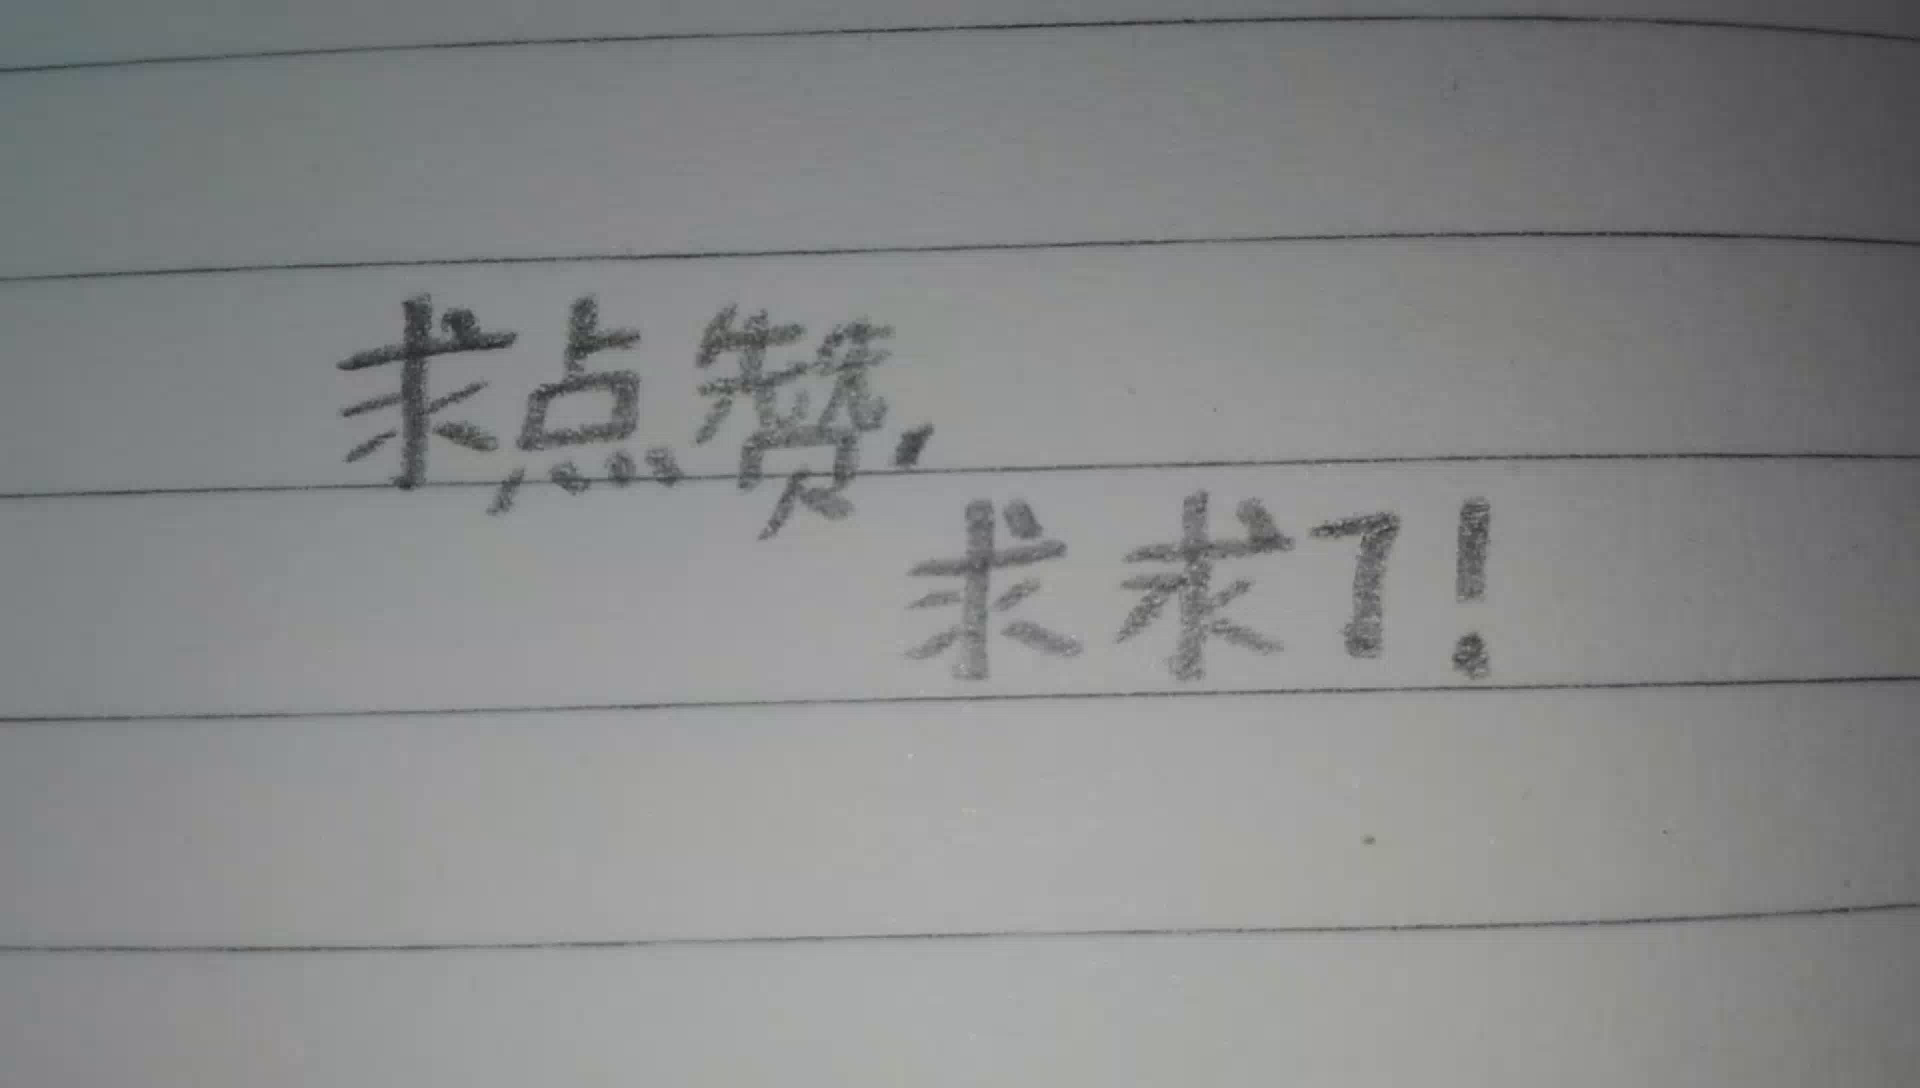 求点赞，
求求了！